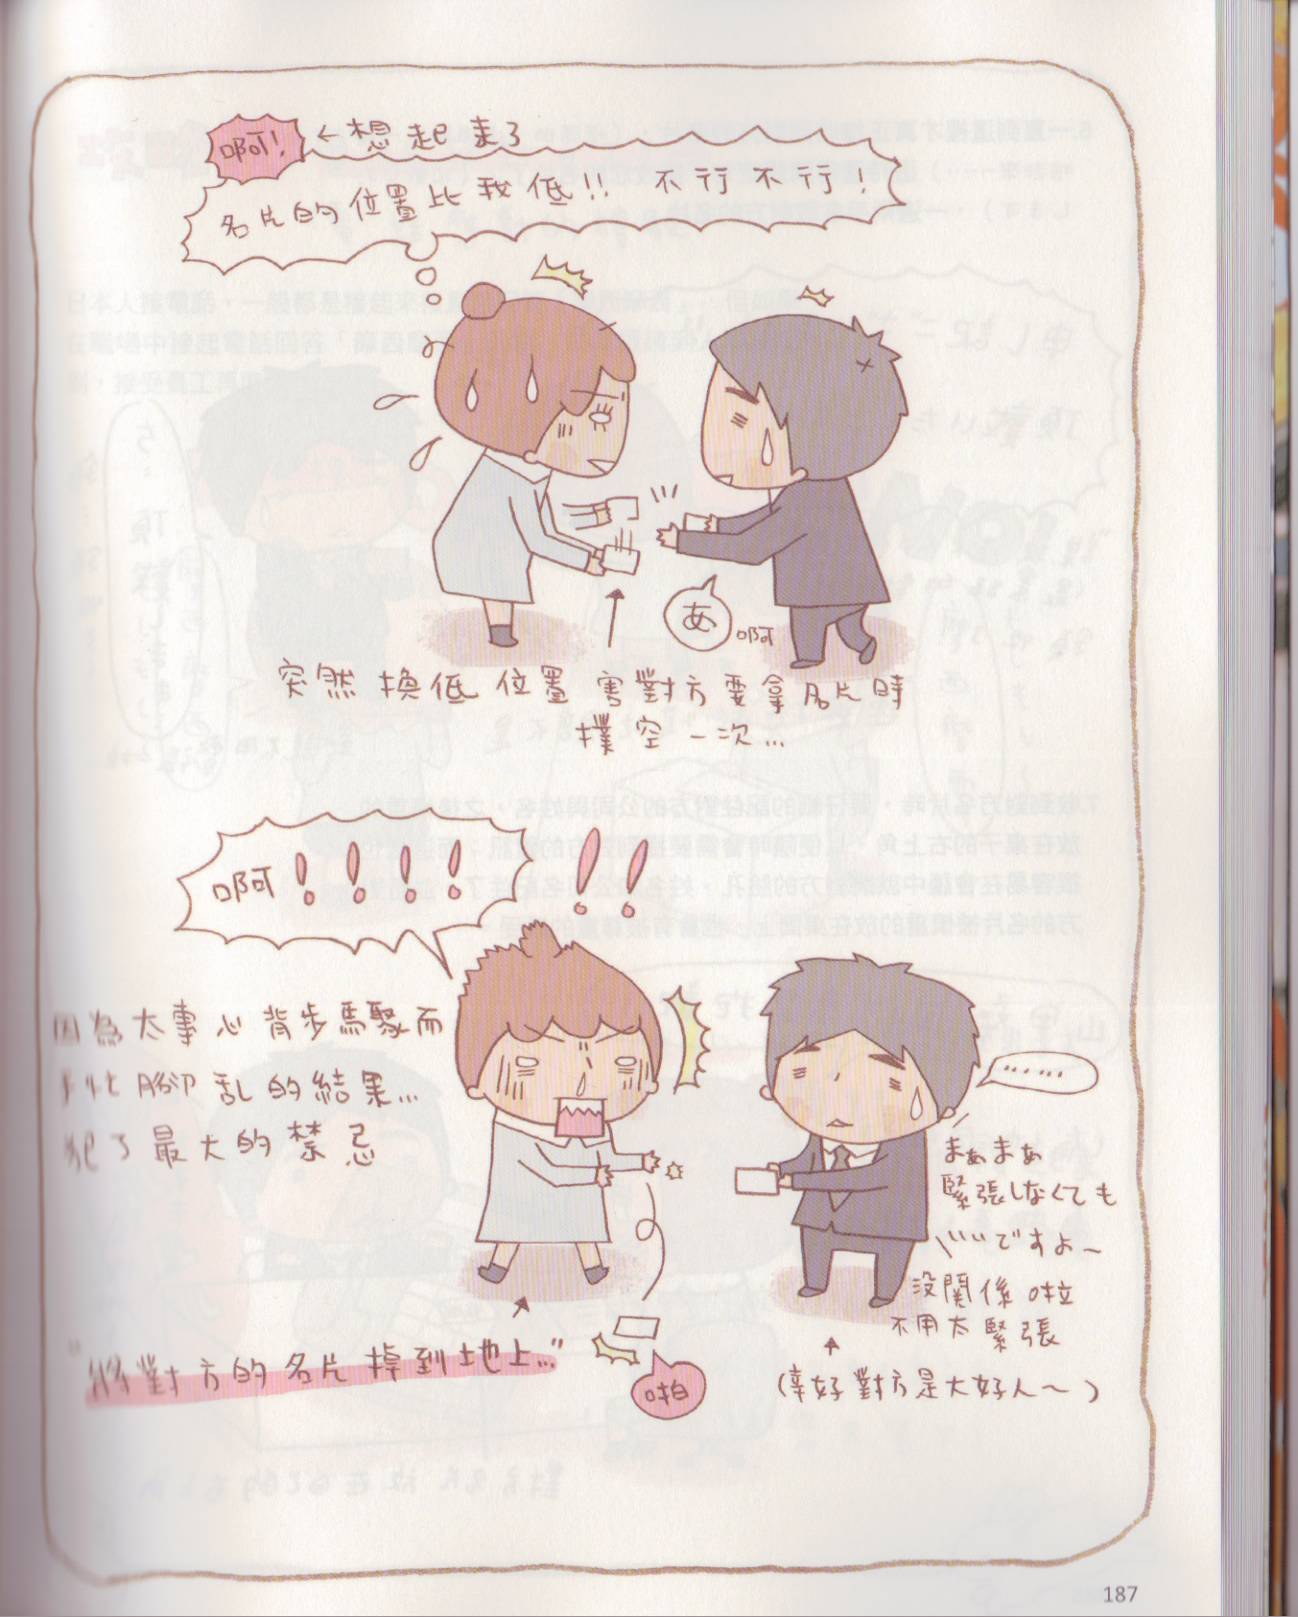 啊! ←想起来了
名片的位置比我低!! 不行不行!
あ 啊
突然換低位置 害對方要拿名片時
撲空一次...
啊!!!! !!
因為太專心背步驟而
手忙腳乱的結果...
犯了最大的禁忌
"將對方的名片掉到地上..."
啪
......
まぁまぁ
緊張しなくても
いいですよ~
没関係啦
不用太緊張
(幸好對方是大好人~)
187